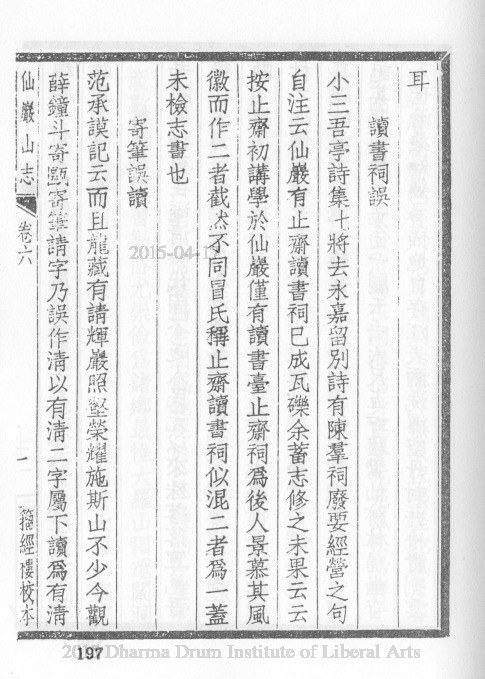 耳
讀書祠誤
小三吾亭詩集七將去永嘉留別詩有陳羣祠廢要經營之句
自注云仙巖有止齋讀書祠已成瓦礫余蓄志修之未果云云
按止齋初講學於仙巖僅有讀書臺止齋祠爲後人景慕其風
徽而作二者截然不同冒氏稱止齋讀書祠似混二者爲一蓋
未檢志書也
寄筆誤讀
范承謨記云而且龍藏有請輝巖照壑榮耀施斯山不少今觀
薛鐘斗寄甌寄筆請字乃誤作淸以有淸二字屬下讀爲有淸
仙巖山志
卷六
一
籀經樓校本
2015-04-1
197
Dharma Drum Institute of Liberal Arts